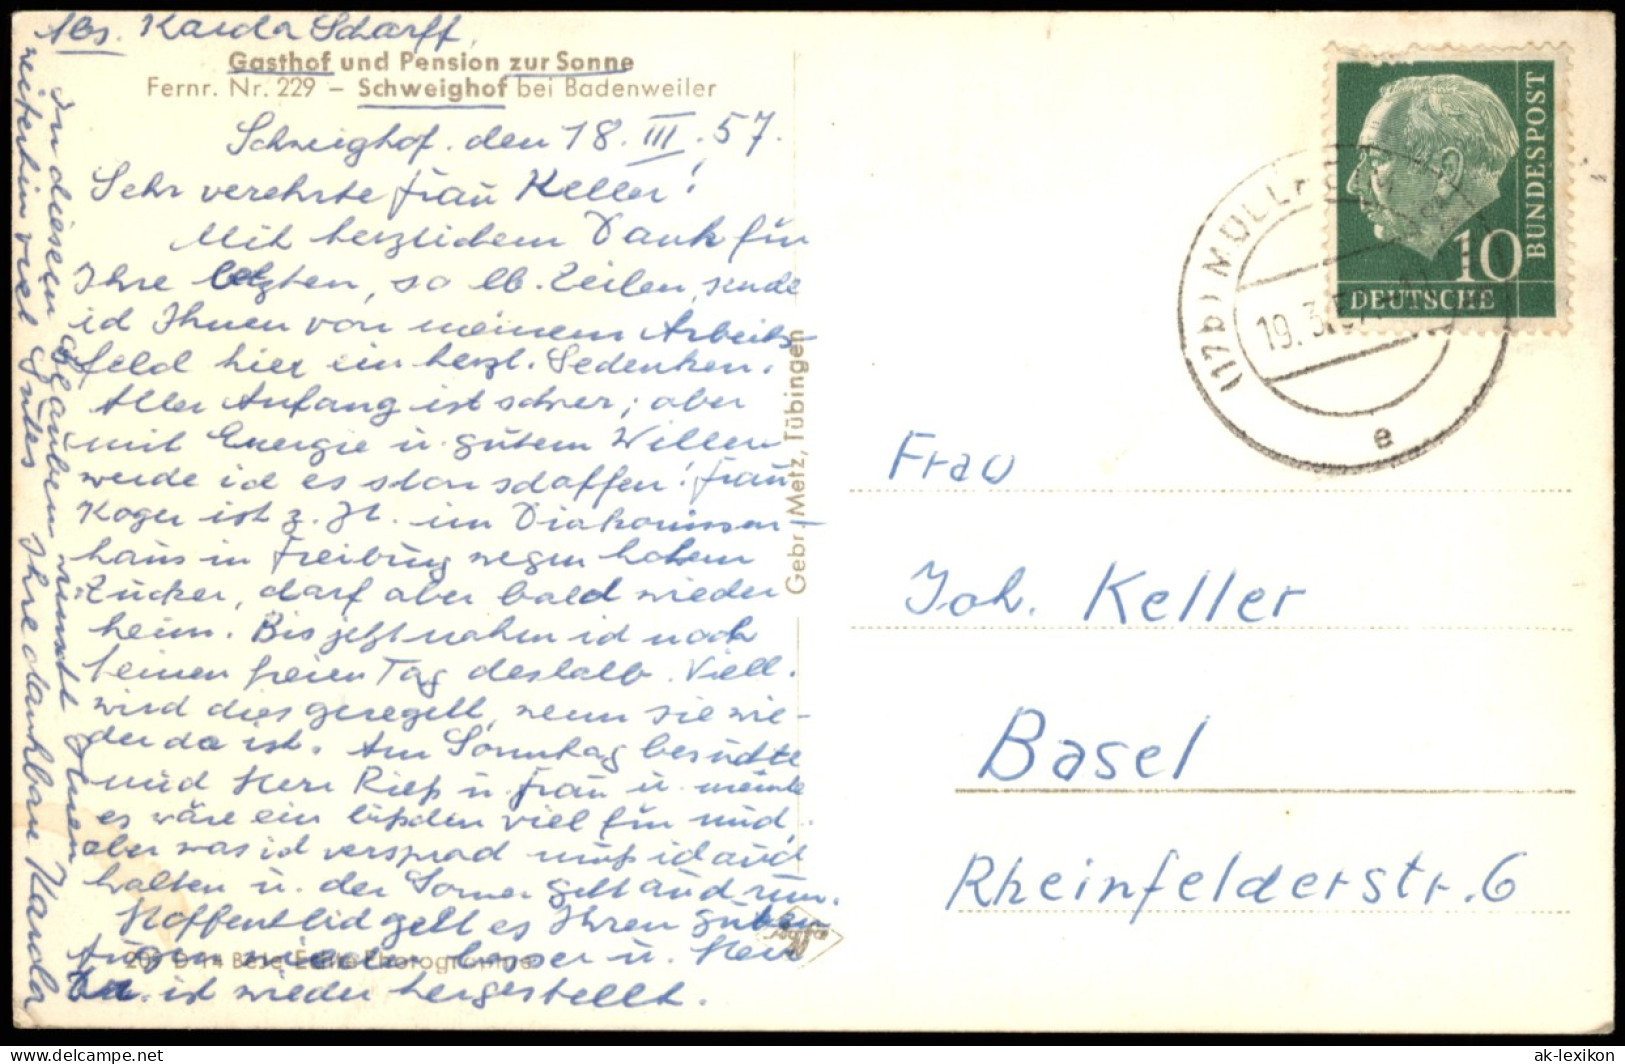 Abs. Karola Scharff,
Gasthof und Pension zur Sonne
Fernr. Nr. 229 – Schweighof bei Badenweiler
Schweighof. den 18. III. 57.
Sehr verehrte Frau Keller!
Mit herzlichem Dank für
Ihre letzten, so lb. Zeilen, sende
ich Ihnen von meinem Arbeits-
feld hier ein herzl. Gedenken.
Aller Anfang ist schwer; aber
mit Energie u. gutem Willen
werde ich es schon schaffen! Frau
Koger ist z. Zt. im Diakonissen-
haus in Freiburg wegen hohem
Zucker, darf aber bald wieder
heim. Bis jetzt nahm ich noch
keinen freien Tag deshalb. Viell.
wird dies geregelt, wenn sie wie-
der da ist. Am Sonntag besuchte
mich Herr Rieß u. Frau u. meinte
es wäre ein bißchen viel für mich,
aber was ich versprach muß ich auch
halten u. der Sommer geht auch rum.
Hoffentlich geht es Ihren guten
Augen wieder besser u. Herr
ist wieder hergestellt.
In diesem Glauben wünscht Ihnen
weiterhin viel Gutes Ihre dankbare Karola
Gebr. Metz, Tübingen
(17b) MÜLLHEIM
19.3.57
e
10
DEUTSCHE
BUNDESPOST
Frau
Joh. Keller
Basel
Rheinfelderstr. 6
ak-lexikon
www.delcampe.net